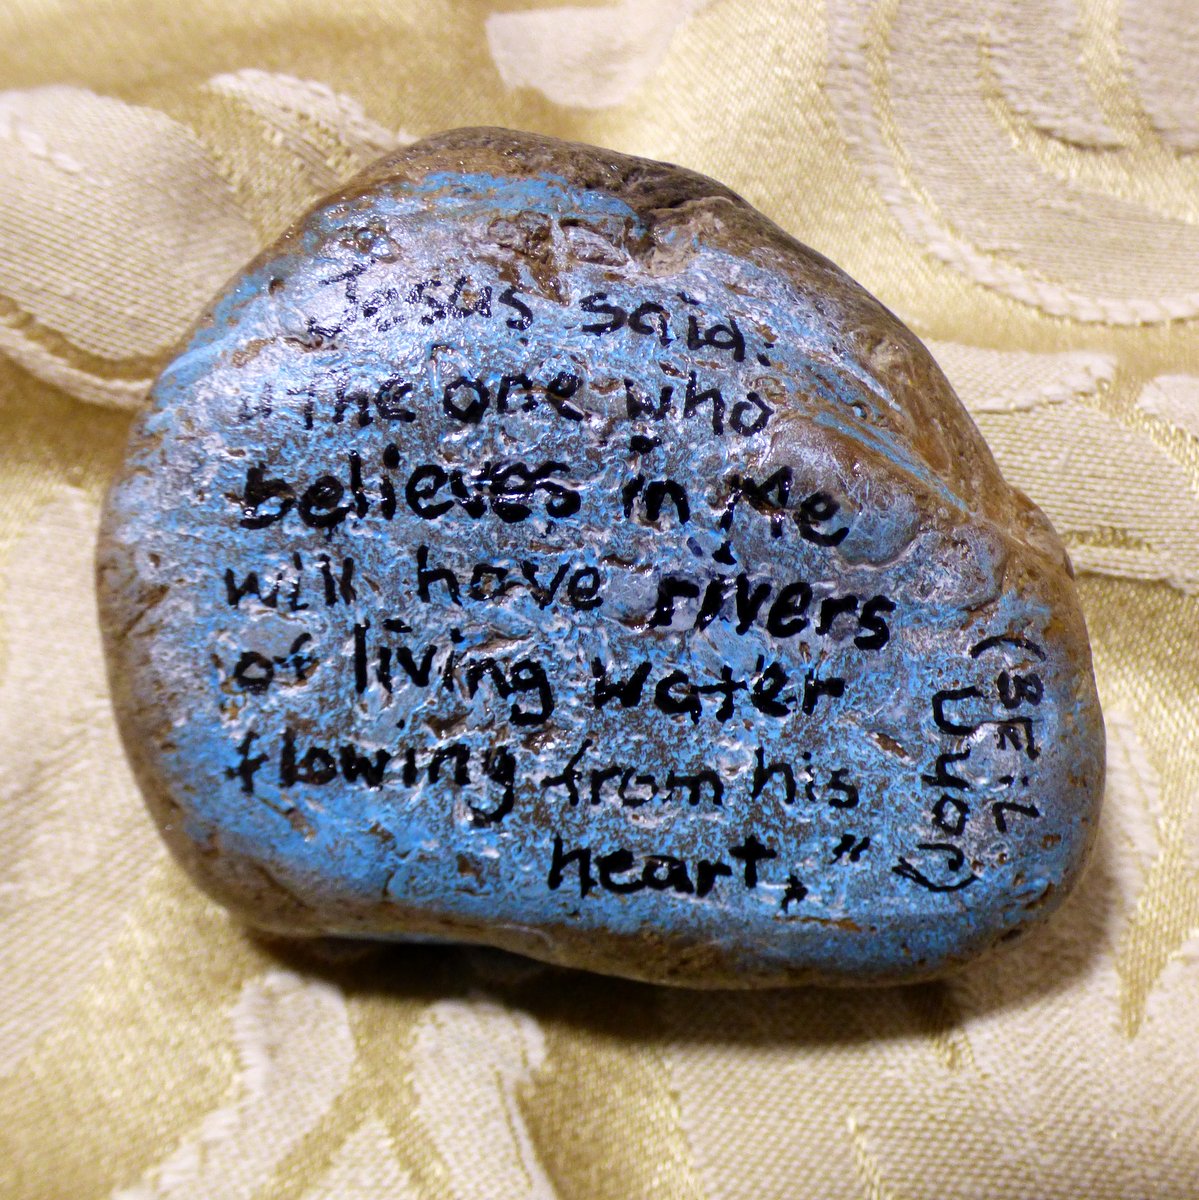 Jesus said:
"The one who
believes in Me
will have rivers
of living water
flowing from his
heart."
(John
7:38)